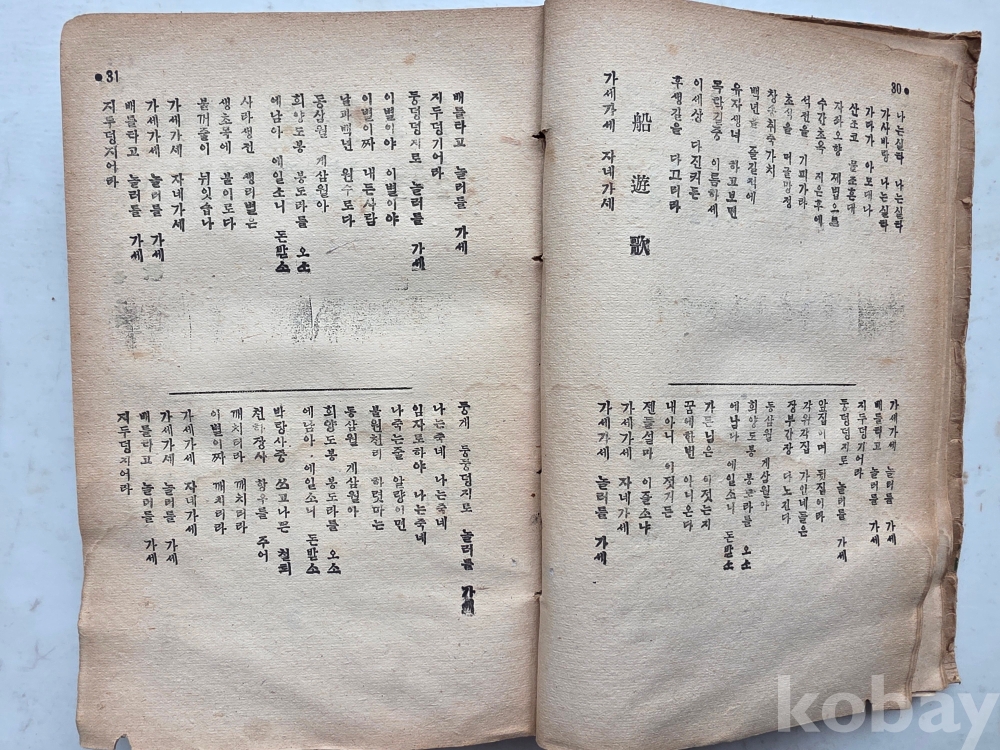 30
나는실타 나는실타
가사바탕 나는실타
가다가 아모데나
산조코 물존혼대
자좌오향 제법으로
수간초옥 지은후에
석전을 기피가라
초식을 머글망정
창송취죽가치
백년을 즐길적에
유자생녀 하고보면
목락길중 이름하세
이세상 다진키든
후생길을 다그터라
船遊歌
가세가세 자네가세
가세가세 놀러를 가세
배를타고 놀러를 가세
지두덩기어라
둥덩덩지로 놀러를 가세
앞집이며 뒷집이라
각위각집 가인네들은
장부간장 다노진다
동삼월 계삼월아
회양도봉 봉도라를 오소
에남아 에일소니 돈받소
가든님은 이젓는지
꿈에한번 아니온다
내아니 이젓거든
젠들설마 이즐소냐
가세가세 자네가세
가세가세 놀러를 가세
31
배를타고 놀러를 가세
지두덩기어라
둥덩덩지로 놀러를 가세
이별이야 이별이야
이별이짜 내든사람
날과백년 원수로다
동삼월 게삼월아
회양도봉 봉도라를 오소
에남아 에일소니 돈받소
사라생전 생리별은
생초목에 불이로다
불꺼줄이 뉘잇습나
가세가세 자네가세
가세가세 놀러를 가세
배를타고 놀러를 가세
지두덩지아라
둥게 둥둥덩지로 놀러를 가세
나는죽네 나는죽네
임자로하야 나는죽네
나죽는줄 알량이면
불원천리 하렷마는
동삼월 게삼월아
회양도봉 봉도라를 오소
에남아 에일소니 돈받소
박랑사중 쓰고나믄 철퇴
천하장사 항우를 주어
깨치터라 깨치터라
이별이짜 깨치터라
가세가세 자네가세
가세가세 놀러를 가세
배를타고 놀러를 가세
지두덩지어라
kobay